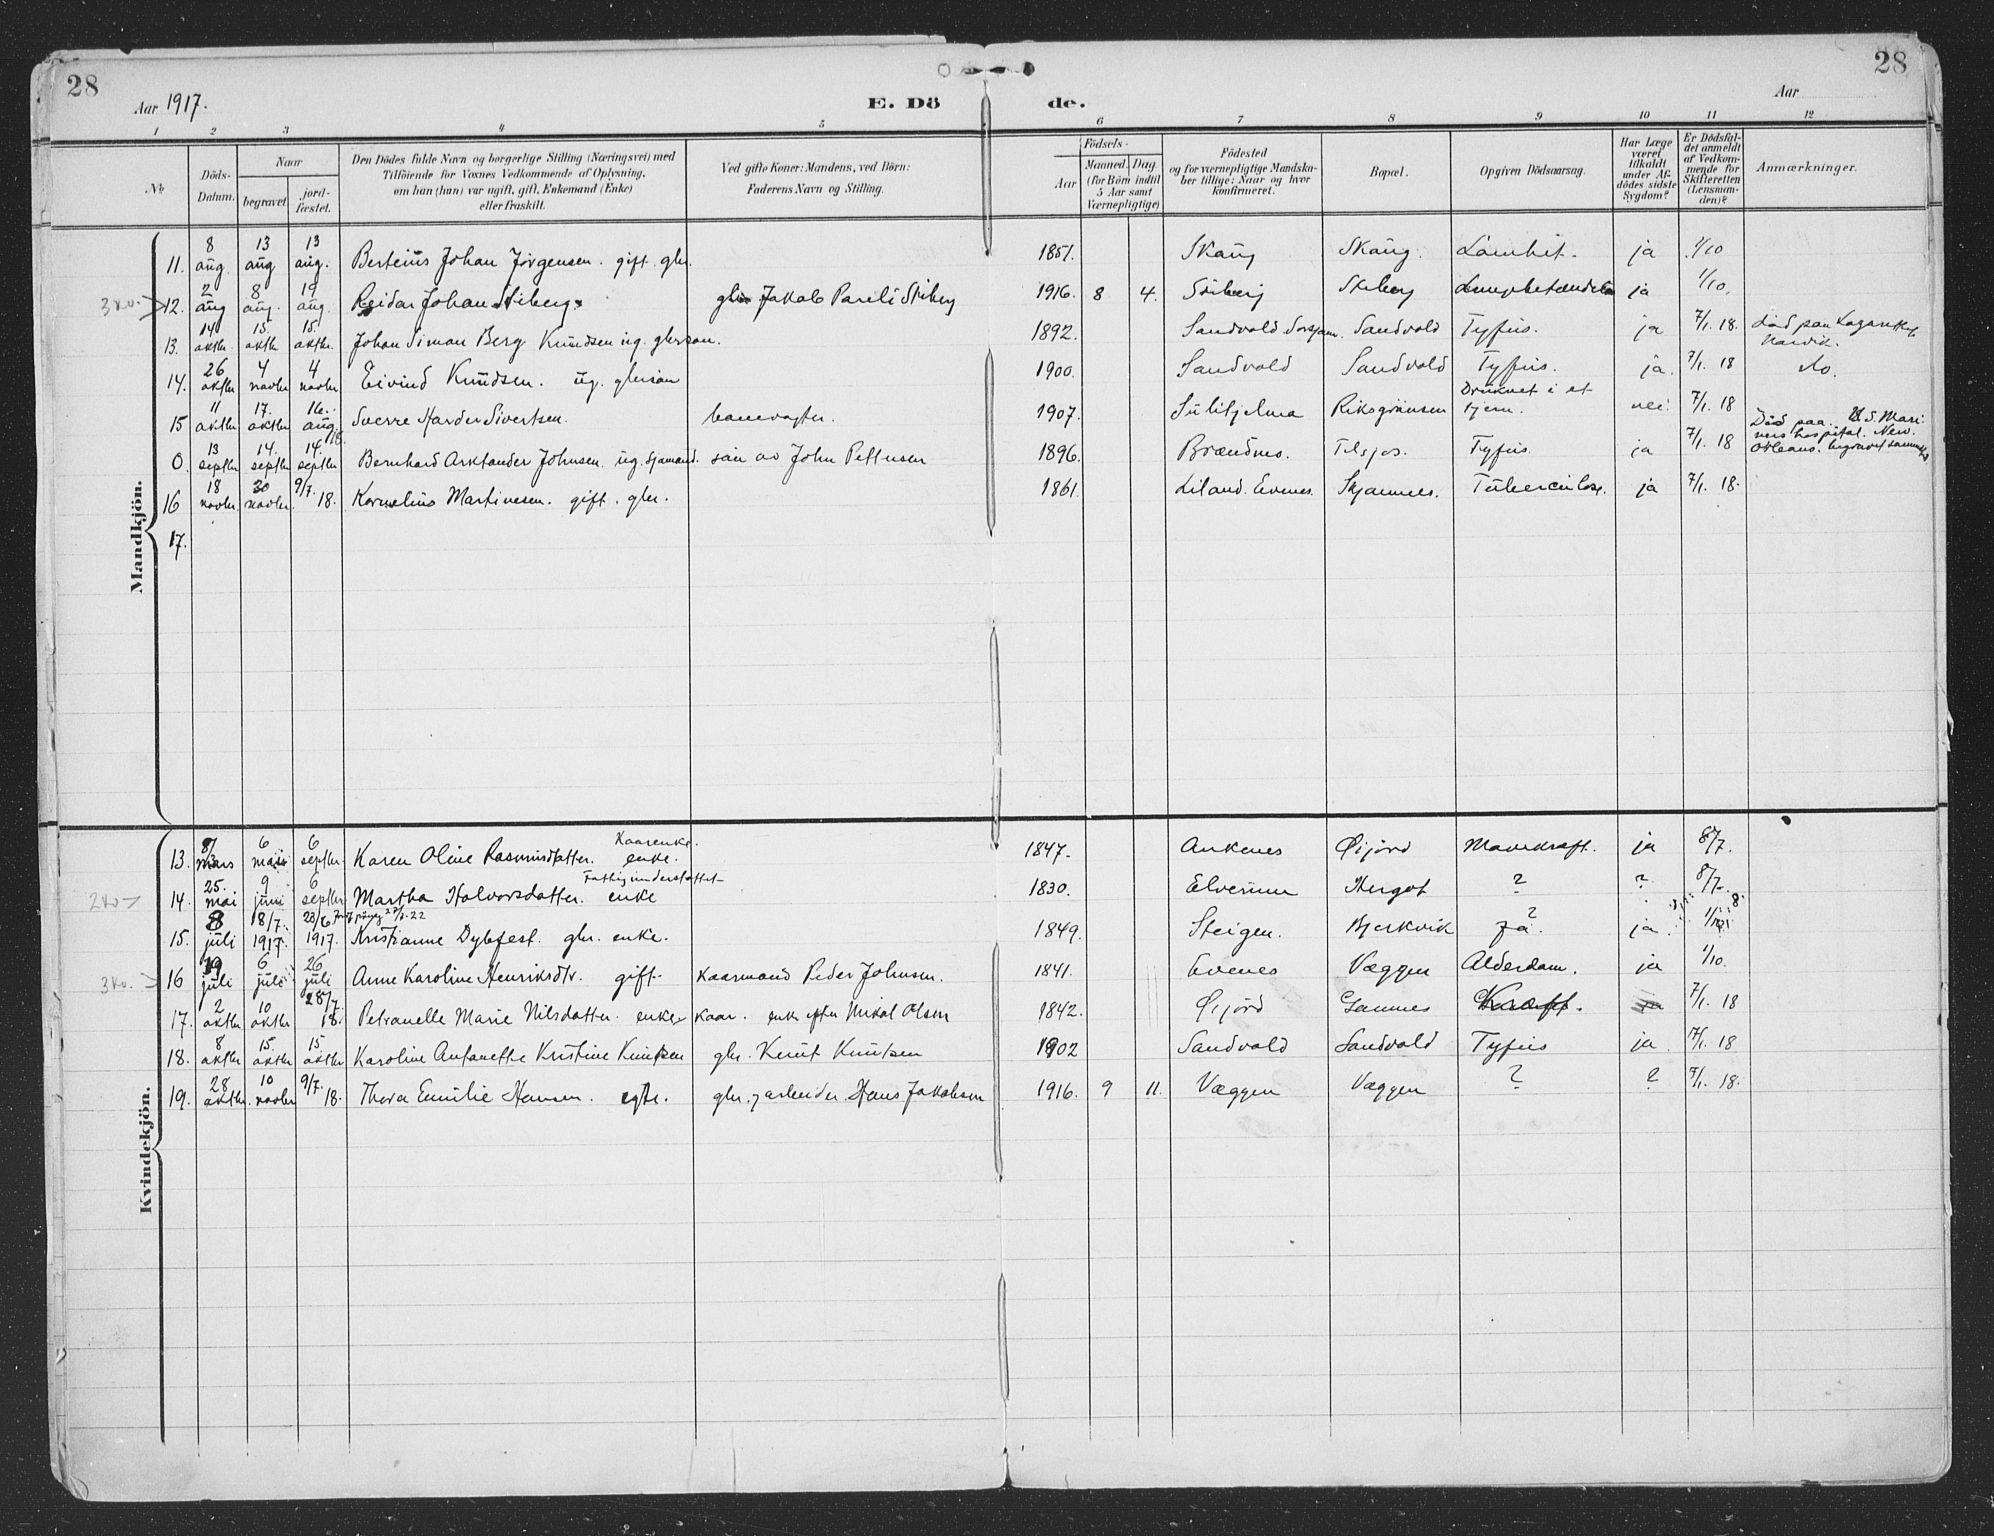 28
28
Aar 1917.
E. Dö
de.
Aar
1 2 3 4 5 6 7 8 9 10 11 12
№
Döds-Datum.
Naar
begravet
jord-fæstet.
Den Dödes fulde Navn og borgerlige Stilling (Næringsvei) med
Tilföiende for Voxnes Vedkommende af Oplysning,
om han (hun) var ugift, gift, Enkemand (Enke)
eller fraskilt.
Ved gifte Koner: Mandens, ved Börn:
Faderens Navn og Stilling.
Födsels-
Aar
Maaned. Dag.
(for Börn indtil
5 Aar samt
Værnepligtige)
Födested
og for værnepligtige Mandskaber tillige: Naar og hvor
konfirmeret.
Bopæl.
Opgiven Dödsaarsag.
Har Læge
været
tilkaldt
under Afdödes sidste
Sygdom?
Er Dödsfaldet anmeldt
af Vedkommende for
Skifteretten
(Lensmanden)?
Anmærkninger.
Mandkjön.
11. 8 aug 13 aug 13 aug. Berteius Johan Jörgensen. gift. gbr. 1851. Skaug Skaug. Lamhet. ja 1/10
3 kv. 12. 2 aug 8 aug. 19 aug. Reidar Johan Stiberg. gbr Jakob Pareli Stiberg 1916. 8 4. Stiberg Stiberg ja 1/10.
13. 14 oktbr. 15. oktbr 15. oktbr. Johan Simon Berg Knudsen ug. gbrsøn. 1892. Sandvold Sandvold Tyfus. ja 7/1. 18. Död paa Narvik.
14. 26 oktbr 4 novbr 4 novbr Eivind Knudsen. ug. gbrsøn 1900. Sandvold Sandvold Tyfus. ja. 7/1. 18 do.
15 11 oktbr 17. oktbr 16. aug. 18. Sverre Harder Sivertsen. banevogter. 1907. Sulitjelma Riksgrænsen Druknet i et tjern. nei. 7/1. 18
0. 13 septbr 14. septbr 14. septbr Bernhard Arktander Johnsen. ug. sjömand. søn av John Pettersen 1896. Brændmo. Tyfus. ja 7/1. 18 Död paa U.S. Mariners hospital. New. Orleans. begravet sammesteds
16 18 novbr. 30 novbr. 9/7. 18. Kornelius Martinesen. gift. gbr. 1861. Liland. Evenes. Skjomnes. Tuberculose. ja 7/1. 18.
17.
Kvindekjön.
13. 8/ mars 6 mai 6 septbr Karen Oline Rasmusdatter. Kaarenke. enke. 1847. Ankenes Øijord Mavekræft. ja 8/7.
2 kv 14. 25. mai 9 juni 6 septbr Martha Halvorsdatter. Fattigunderstøttet enke 1830. Elverum Hergot ? ? 8/7.
15. 8 juli 18/7. 1917. 23/6 1917. Kristianne Dybfest. gbr. enke. 1849. Steigen. Bjerkvik ? ja. 1/10
3 kv. 16 19 juli 6 juli 26 juli Anne Karoline Henriksdtr. gift Kaarmand Peder Johnsen. 1841. Evenes Væggen Alderdom. ja 1/10.
17. 2 oktbr 10 oktbr 28/7. 18. Petranelle Marie Nilsdatter. enke kaar. enke efter Nikol Olsen 1842. Øijord Gamnes Kræft. ja 7/1. 18
18. 8 oktbr 15. oktbr 15 oktbr Karoline Antonette Kristine Knutsen gbr. Knut Knutsen 1902 Sandvold Sandvold Tyfus ja. 7/1. 18
19. 28 oktbr. 10 novbr 9/7. 18. Thora Emilie Hansen. egte. gbr. jarbeider. Hans Jakobsen 1916. 9 11. Væggen Væggen ? ? 7/1. 18.